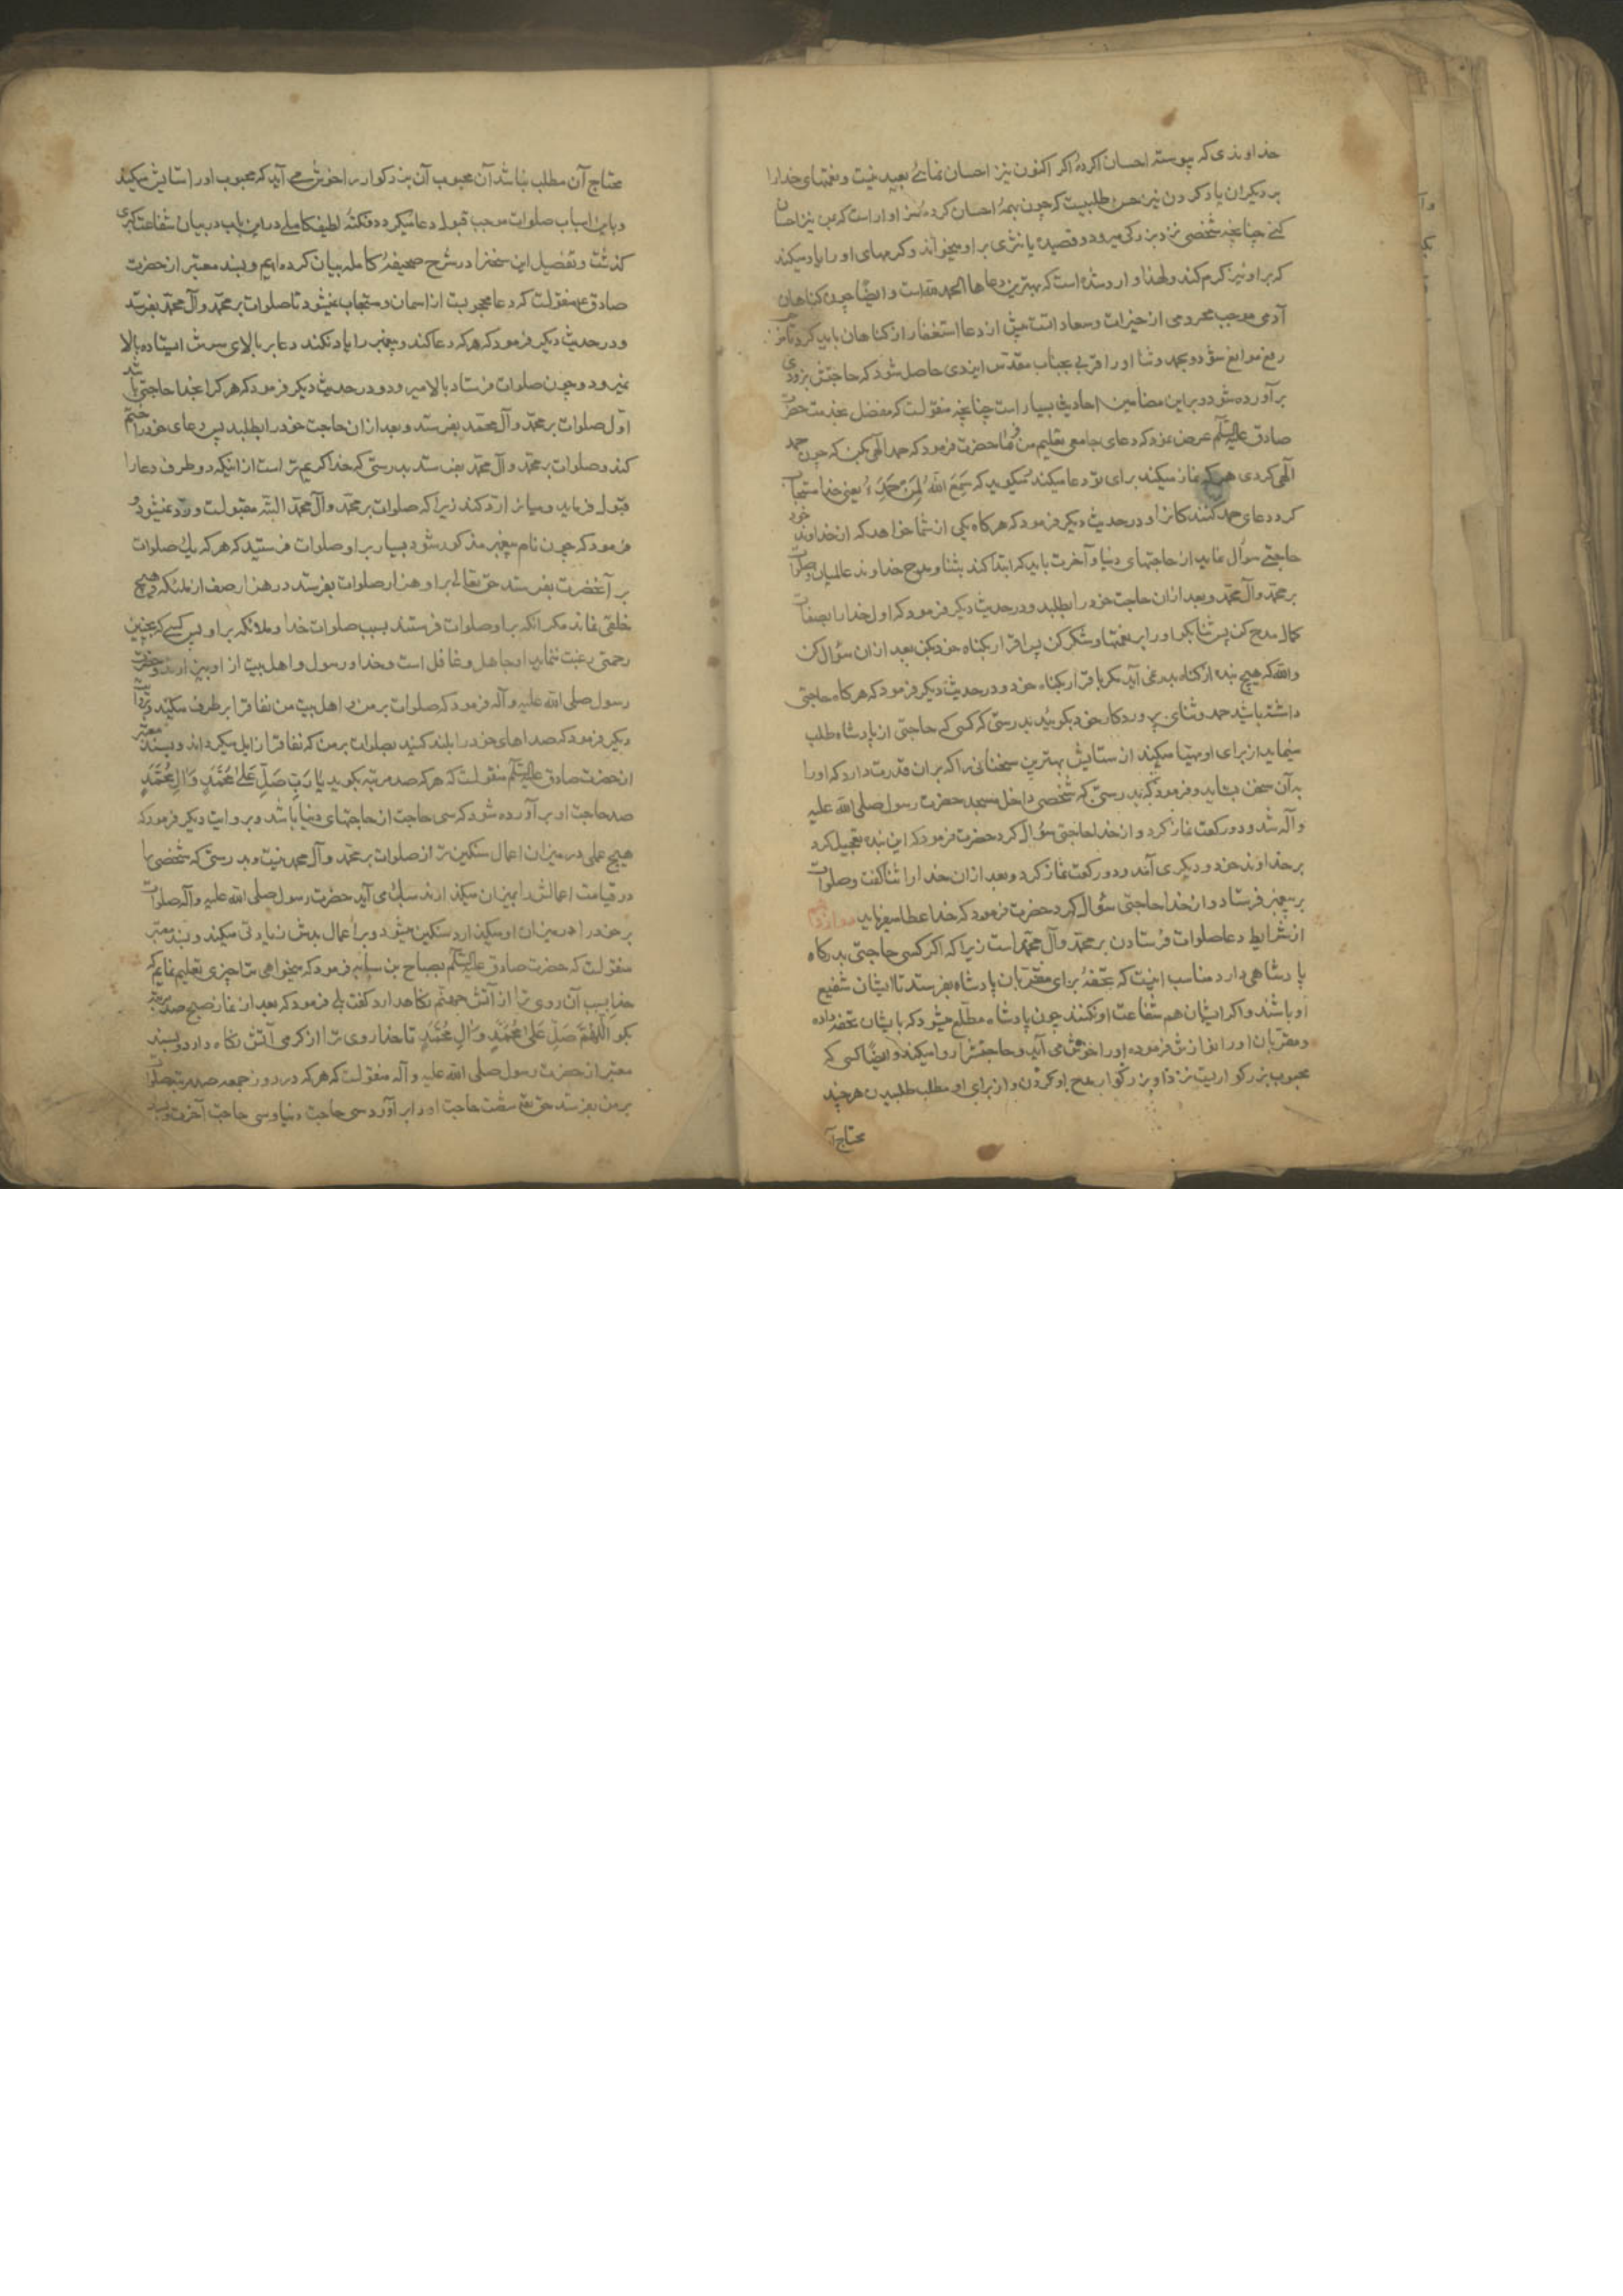 خداوندی که پیوسته احسان کرده اکر اکنون نیز احسان نمائی بعید نیست و نعمتهای خدا را
بر دیکران یاد کردن نیز حسن طلبیست که چون بهمه احسان کرده سزاوار است که بمن نیز احسان
کنی چنانچه شخصی نزد بزرکی میرود و قصیده یا نثری بر او میخواند و کرمهای او را یاد میکند
که بر او نیز کرم کند و لهذا وارد شده است که بهترین دعاها الحمد لله است و ایضا چون کناهان
آدمی موجب محرومی از خیرات و سعادات است پیش از دعا استغفار از کناهان باید کرد تا
رفع موانع شود و بحمد و ثنا او را قربی بجناب مقدس ایزدی حاصل شود که حاجتش بزودی
برآورده شود و بر این مضامین احادیث بسیار است چنانچه منقولست که مفضل بخدمت حضرت
صادق علیه السلام عرض نمود که دعای جامعی تعلیم من فرما حضرت فرمود که حمد الهی بکن که چون حمد
الهی کردی هر که نماز میکند برای تو دعا میکند میکوید که سَمِعَ اللهُ لِمَنْ حَمِدَهُ یعنی خدا مستجاب
کرد دعای حمد کنندکانرا و در حدیث دیکر فرمود که هرکاه یکی از شما خواهد که از خداوند خود
حاجتی سؤال نماید از حاجتهای دنیا و آخرت باید که ابتدا کند بثنا و مدح خداوند عالمیان و صلوات
بر محمد و آل محمد و بعد از ان حاجت خود را بطلبد و در حدیث دیکر فرمود که اول خدا را بصفات
کمال مدح کن پس ثنا بکو او را بر نعمتها و شکر کن پس اقرار بکناه خود بکن بعد از ان سؤال کن
والله که هیچ بنده از کناه بدر نمی آید مکر باقرار بکناه خود و در حدیث دیکر فرمود که هرکاه حاجتی
داشته باشید حمد و ثنای پروردکار خود بکوئید بدرستی که کسی که حاجتی از پادشاه طلب
مینماید از برای او مهیا میکند از ستایش بهترین سخنانی را که بر ان قدرت دارد که او را
به آن سخن بستاید و فرمود که بدرستی که شخصی داخل مسجد حضرت رسول صلی الله علیه
و آله شد و دو رکعت نماز کرد و از خدا حاجتی سؤال کرد حضرت فرمود که این بنده تعجیل کرد
بر خداوند خود و دیکری آمد و دو رکعت نماز کرد و بعد از ان خدا را ثنا کفت و صلوات
بر پیغمبر فرستاد و از خدا حاجتی سؤال کرد حضرت فرمود که خدا عطا میفرماید
از شرایط دعا صلوات فرستادن بر محمد و آل محمد است زیرا که اکر کسی حاجتی بدرکاه
پادشاهی دارد مناسب اینست که تحفهٔ برای مقربان پادشاه بفرستد تا ایشان شفیع
او باشند و اکر ایشان هم شفاعت او نکنند چون پادشاه مطلع میشود که با ایشان تحفه داده
و مقربان او را نوازش فرموده او را خوش می آید و حاجتش را روا میکند و ایضا کسی که
محبوب بزرکواریست نزد او بزرکوار مدح او کردن و از برای او مطلب طلبیدن هر چند
محتاج آن
محتاج آن مطلب نباشد آن محبوب آن بزرکوار را خوش می آید که محبوب او را ستایش میکنید
و باین اسباب صلوات موجب قبول دعا میکردد و نکتهٔ لطیف کاملی در این باب در بیان شفاعت کبری
کذشت و تفصیل این سخنرا در شرح صحیفهٔ کامله بیان کرده ایم و بسند معتبر از حضرت
صادق ع منقولست که دعا محجوبست از اسمان و مستجاب نمیشود تا صلوات بر محمد و آل محمد بفرستد
و در حدیث دیکر فرمود که هر که دعا کند و پیغمبر را یاد نکند دعا بر بالای سرش ایستاده بالا
نمیرود و چون صلوات فرستاد بالا میرود و در حدیث دیکر فرمود که هر کرا بخدا حاجتی باشد
اول صلوات بر محمد و آل محمد بفرستد و بعد از ان حاجت خود را بطلبد پس دعای خود را ختم
کند و صلوات بر محمد و آل محمد بفرستد بدرستی که خدا کریم تر است از اینکه دو طرف دعا را
قبول فرماید و میانرا رد کند زیرا که صلوات بر محمد و آل محمد البته مقبولست و رد نمیشود و
فرمود که چون نام پیغمبر مذکور شود بسیار بر او صلوات فرستید که هر که یک صلوات
بر آنحضرت بفرستد حق تعالی بر او هزار صلوات بفرستد در هزار صف از ملئکه و هیچ
خلقی نماند مکر انکه بر او صلوات فرستند بسبب صلوات خدا و ملائکه بر او پس کسی که بچنین
رحمتی رغبت ننماید او جاهل و غافل است و خدا و رسول و اهل بیت از او بیزارند و حضرت
رسول صلی الله علیه و آله فرمود که صلوات بر من و اهل بیت من نفاق را بر طرف میکند و
دیکر فرمود که صداهای خود را بلند کنید بصلوات بر من که نفاق را زایل میکرداند و بسند معتبر
از حضرت صادق علیه السلام منقولست که هر که صد مرتبه بکوید یَا رَبِّ صَلِّ عَلیٰ مُحَمَّدٍ وَ اٰلِ مُحَمَّدٍ
صد حاجت او برآورده شود که سی حاجت از حاجتهای دنیا باشد و بروایت دیکر فرمود که
هیچ عملی در میزان اعمال سنکین تر از صلوات بر محمد و آل محمد نیست و بدرستی که شخصی را
در قیامت اعمالش را بمیزان میکذارند سبک می آید حضرت رسول صلی الله علیه و آله صلوات
بر خود را در میزان او میکذارد سنکین میشود و بر اعمال بدش زیادتی میکند و بسند معتبر
منقولست که حضرت صادق علیه السلام بصباح بن سیابه فرمود که میخواهی ترا چیزی تعلیم نمایم که
خدا بسبب آن روی ترا از آتش جهنم نکاهدارد کفت بلی فرمود که بعد از نماز صبح صد مرتبه
بکو اَللّٰهُمَّ صَلِّ عَلیٰ مُحَمَّدٍ وَ اٰلِ مُحَمَّدٍ تا خدا روی ترا از کرمی آتش نکاه دارد و بسند
معتبر از حضرت رسول صلی الله علیه و آله منقولست که هر که در روز جمعه صد مرتبه صلوات
بر من بفرستد حق تعالی شصت حاجت او را برآورد سی حاجت دنیا و سی حاجت آخرت و